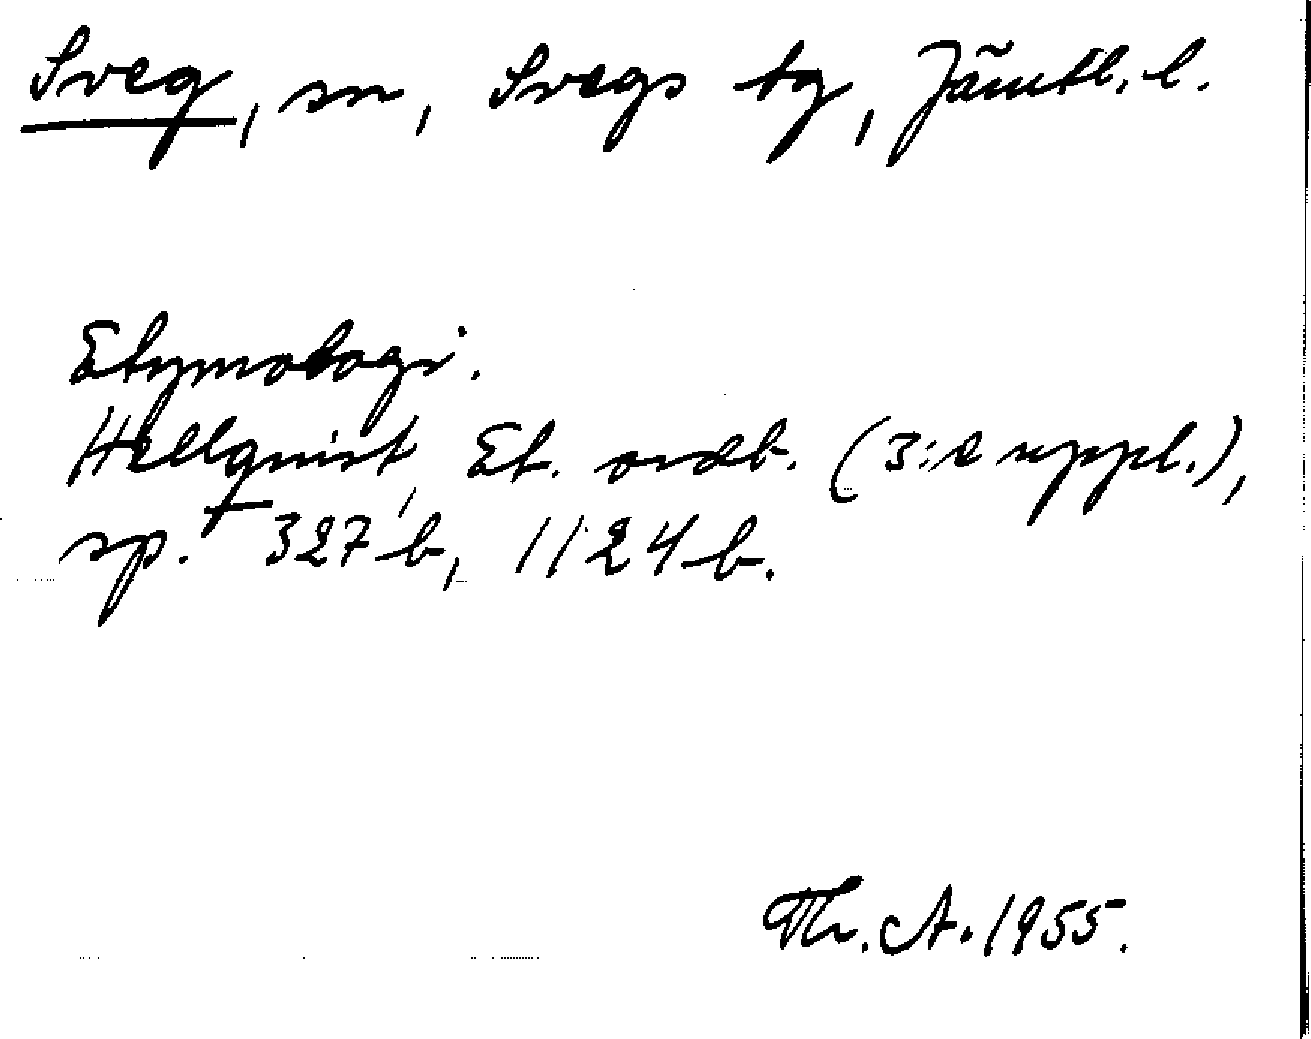 Sveg, sn, Svegs tg, Jämtl. l.
Etymologi.
Hellquist, Et. ordb. (3:e uppl.),
sp. 327 b, 1124 b.
Th. A. 1955.